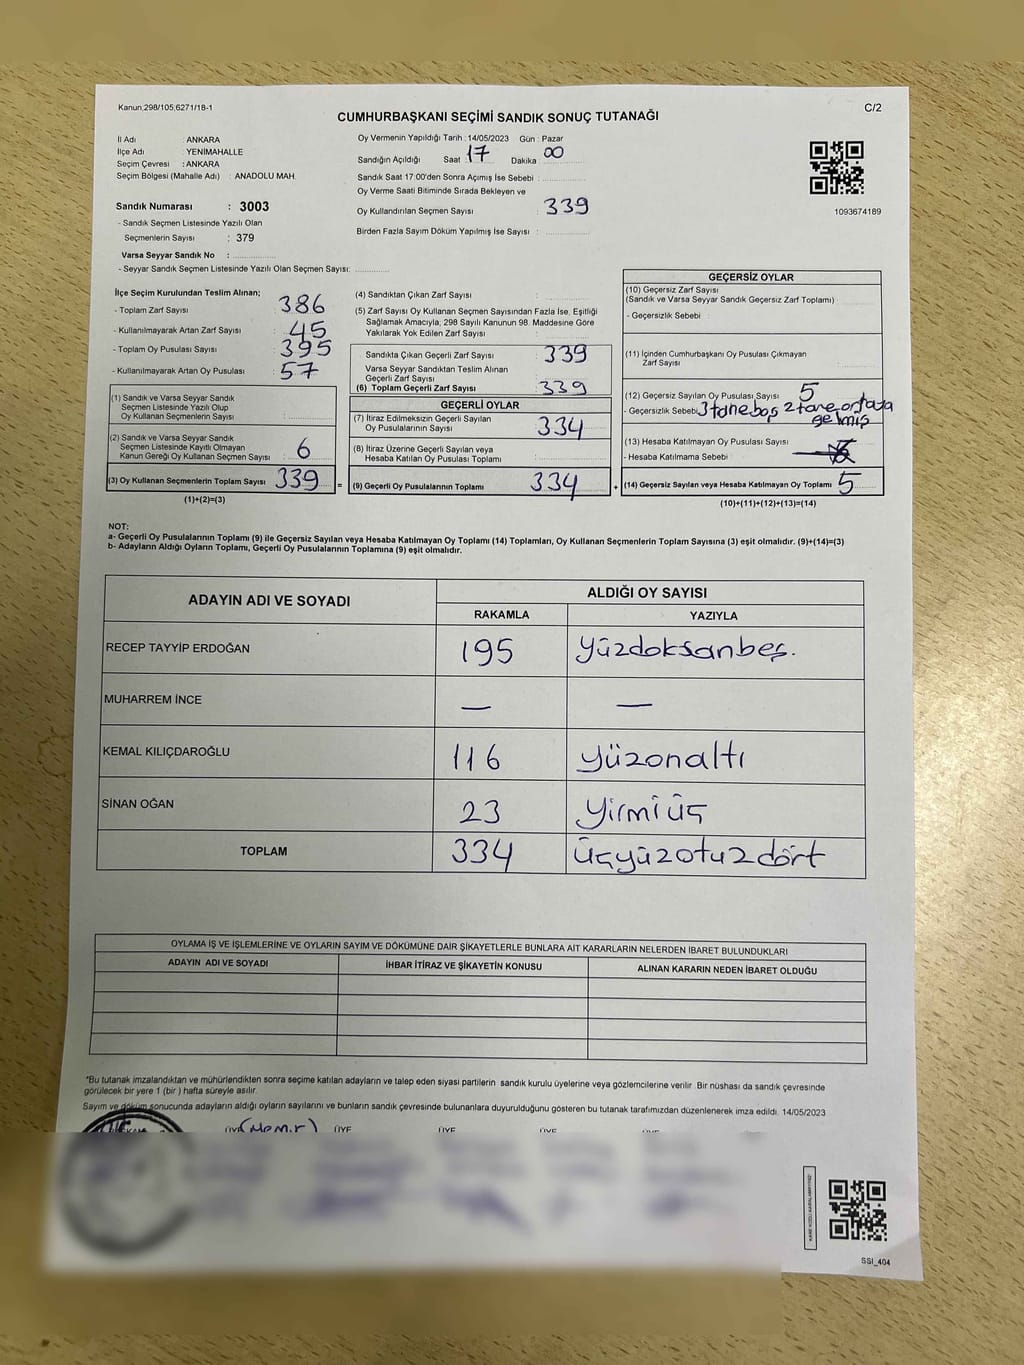 Kanun,298/105,6271/18-1
C/2
CUMHURBAŞKANI SEÇİMİ SANDIK SONUÇ TUTANAĞI
İl Adı ANKARA
İlçe Adı YENİMAHALLE
Seçim Çevresi : ANKARA
Seçim Bölgesi (Mahalle Adı) : ANADOLU MAH.
Sandık Numarası : 3003
- Sandık Seçmen Listesinde Yazılı Olan
Seçmenlerin Sayısı : 379
Varsa Seyyar Sandık No :
- Seyyar Sandık Seçmen Listesinde Yazılı Olan Seçmen Sayısı:
Oy Vermenin Yapıldığı Tarih : 14/05/2023 Gün : Pazar
Sandığın Açıldığı Saat : 17 Dakika : 00
Sandık Saat 17:00'den Sonra Açımış İse Sebebi :
Oy Verme Saati Bitiminde Sırada Bekleyen ve
Oy Kullandırılan Seçmen Sayısı : 339
Birden Fazla Sayım Döküm Yapılmış İse Sayısı :
1093674189
İlçe Seçim Kurulundan Teslim Alınan;
- Toplam Zarf Sayısı : 386
- Kullanılmayarak Artan Zarf Sayısı : 45
- Toplam Oy Pusulası Sayısı : 395
- Kullanılmayarak Artan Oy Pusulası : 57
(1) Sandık ve Varsa Seyyar Sandık
Seçmen Listesinde Yazılı Olup
Oy Kullanan Seçmenlerin Sayısı :
(2) Sandık ve Varsa Seyyar Sandık
Seçmen Listesinde Kayıtlı Olmayan
Kanun Gereği Oy Kullanan Seçmen Sayısı : 6
(3) Oy Kullanan Seçmenlerin Toplam Sayısı : 339
(1)+(2)=(3)
(4) Sandıktan Çıkan Zarf Sayısı :
(5) Zarf Sayısı Oy Kullanan Seçmen Sayısından Fazla İse, Eşitliği
Sağlamak Amacıyla, 298 Sayılı Kanunun 98. Maddesine Göre
Yakılarak Yok Edilen Zarf Sayısı :
Sandıkta Çıkan Geçerli Zarf Sayısı : 339
Varsa Seyyar Sandıktan Teslim Alınan
Geçerli Zarf Sayısı :
(6) Toplam Geçerli Zarf Sayısı : 339
=
GEÇERLİ OYLAR
(7) İtiraz Edilmeksizin Geçerli Sayılan
Oy Pusulalarının Sayısı : 334
(8) İtiraz Üzerine Geçerli Sayılan veya
Hesaba Katılan Oy Pusulası Toplamı :
(9) Geçerli Oy Pusulalarının Toplamı : 334
+
GEÇERSİZ OYLAR
(10) Geçersiz Zarf Sayısı
(Sandık ve Varsa Seyyar Sandık Geçersiz Zarf Toplamı) :
- Geçersizlik Sebebi :
(11) İçinden Cumhurbaşkanı Oy Pusulası Çıkmayan
Zarf Sayısı :
(12) Geçersiz Sayılan Oy Pusulası Sayısı : 5
- Geçersizlik Sebebi : 3 tane boş 2 tane ortaya
gelmiş
(13) Hesaba Katılmayan Oy Pusulası Sayısı :
- Hesaba Katılmama Sebebi :
(14) Geçersiz Sayılan veya Hesaba Katılmayan Oy Toplamı : 5
(10)+(11)+(12)+(13)=(14)
NOT:
a- Geçerli Oy Pusulalarının Toplamı (9) ile Geçersiz Sayılan veya Hesaba Katılmayan Oy Toplamı (14) Toplamları, Oy Kullanan Seçmenlerin Toplam Sayısına (3) eşit olmalıdır. (9)+(14)=(3)
b- Adayların Aldığı Oyların Toplamı, Geçerli Oy Pusulalarının Toplamına (9) eşit olmalıdır.
ADAYIN ADI VE SOYADI
ALDIĞI OY SAYISI
RAKAMLA YAZIYLA
RECEP TAYYİP ERDOĞAN 195 yüzdoksanbeş.
MUHARREM İNCE — —
KEMAL KILIÇDAROĞLU 116 yüzonaltı
SİNAN OĞAN 23 yirmiüç
TOPLAM 334 üçyüzotuzdört
OYLAMA İŞ VE İŞLEMLERİNE VE OYLARIN SAYIM VE DÖKÜMÜNE DAİR ŞİKAYETLERLE BUNLARA AİT KARARLARIN NELERDEN İBARET BULUNDUKLARI
ADAYIN ADI VE SOYADI İHBAR İTİRAZ VE ŞİKAYETİN KONUSU ALINAN KARARIN NEDEN İBARET OLDUĞU
*Bu tutanak imzalandıktan ve mühürlendikten sonra seçime katılan adayların ve talep eden siyasi partilerin sandık kurulu üyelerine veya gözlemcilerine verilir. Bir nüshası da sandık çevresinde
görülecek bir yere 1 (bir) hafta süreyle asılır.
Sayım ve döküm sonucunda adayların aldığı oyların sayılarını ve bunların sandık çevresinde bulunanlara duyurulduğunu gösteren bu tutanak tarafımızdan düzenlenerek imza edildi. 14/05/2023
ÜYE (Memur) ÜYE ÜYE ÜYE
SSI_404